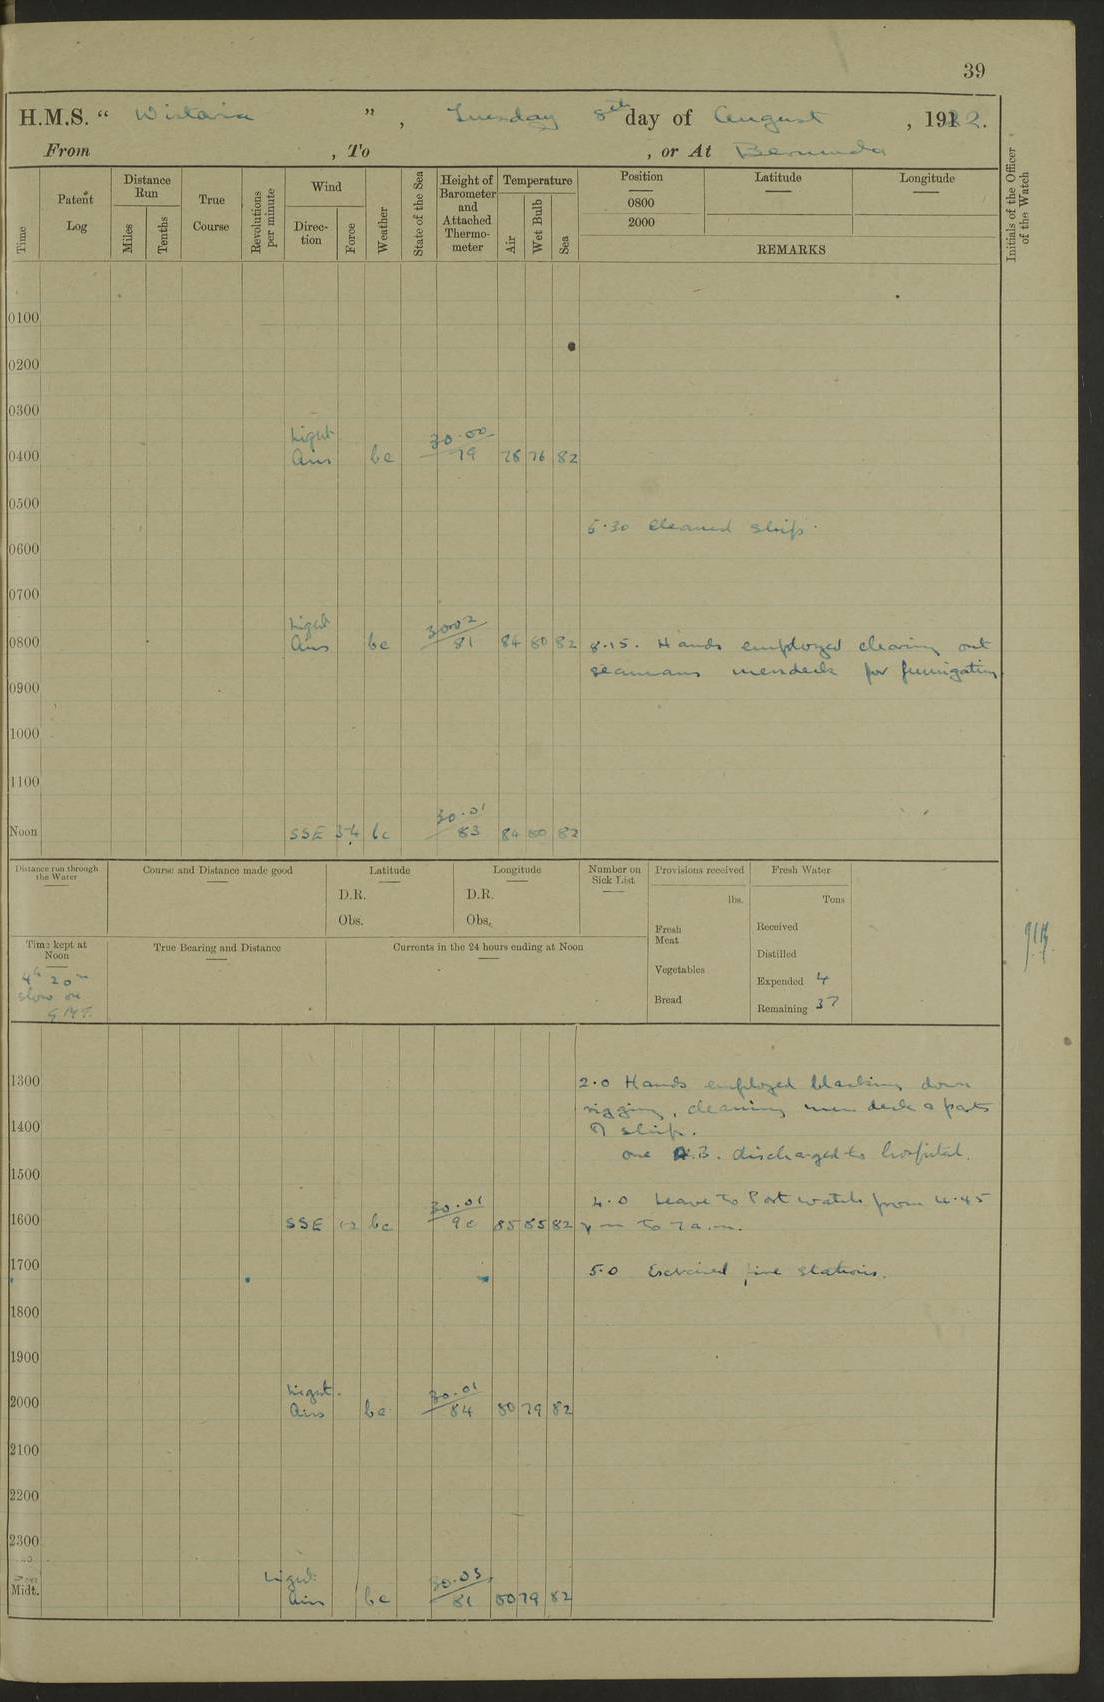 39
H.M.S. “ Wistaria ” , Tuesday 8th day of August , 1922.
From , To , or At Bermuda
Time
Patent Log
Distance Run
Miles
Tenths
True Course
Revolutions per minute
Wind
Direction
Force
Weather
State of the Sea
Height of Barometer and Attached Thermometer
Temperature
Air
Wet Bulb
Sea
Position
Latitude
Longitude
0800
2000
REMARKS
Initials of the Officer of the Watch
0100
0200
0300
0400 Light Airs bc 30.00 79 78 76 82
0500
5.30 Cleaned ship.
0600
0700
0800 Light Airs bc 30.02 81 84 80 82 8.15. Hands employed clearing out
seamans messdeck for fumigation
0900
1000
1100
Noon SSE 3-4 bc 30.01 83 84 80 82
Distance run through the Water
Course and Distance made good
Latitude
Longitude
D.R.
D.R.
Obs.
Obs.
Number on Sick List
Provisions received
lbs.
Fresh Meat
Vegetables
Bread
Fresh Water
Tons
Received
Distilled
Expended 4
Remaining 37
Time kept at Noon
4h 20m
slow on
G.M.T.
True Bearing and Distance
Currents in the 24 hours ending at Noon
1300 2.0 Hands employed blacking down
rigging, cleaning mess deck & parts
1400 of ship.
one A.B. discharged to hospital.
1500
4.0 Leave to Port watch from 4.45
1600 SSE 1-2 bc 30.01 90 85 85 82 pm to 7 a.m.
1700 5.0 Exercised fire stations.
1800
1900
2000 Light Airs bc 30.01 84 80 79 82
2100
2200
2300
Midt. Light Airs bc 30.03 81 80 79 82